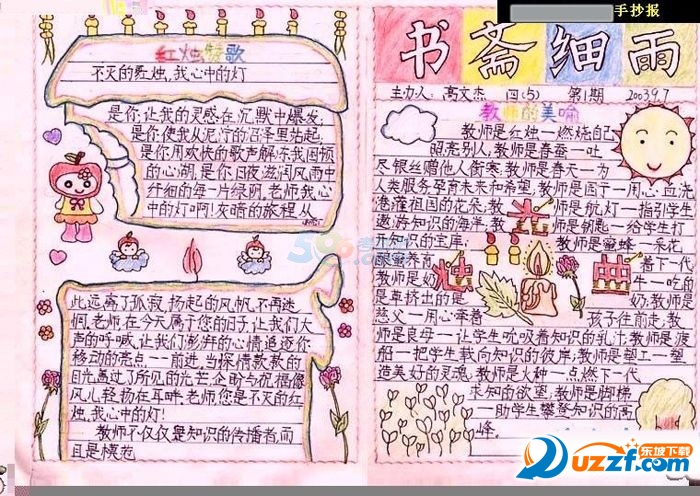 手抄报
红烛颂歌
不灭的红烛,我心中的灯
是你,让我的灵感在沉默中爆发;
是你使我从泥泞的沼泽里站起;
是你用欢快的歌声解冻我困顿
的心湖,是你日夜滋润风雨中
纤细的每一片绿阴,老师我心
中的灯啊!灰暗的旅程从
此远离了孤寂,扬起的风帆,不再迷
惘,老师,在今天属于您的日子,让我们大
声的呼喊,让我们澎湃的心情追逐你
移动的亮点——前进,当深情款款的
目光盖过了所见的光芒,企盼与祝福像
风儿轻扬在耳畔,老师,您是不灭的红
烛,我心中的灯!
教师不仅仅是知识的传播者,而
且是模范
书斋细雨
主办人:高文杰 四(5) 第1期 2003.9.7
教师的美喻
教师是红烛一燃烧自己
照亮别人,教师是春蚕一吐
尽银丝赠他人御寒,教师是春天一为
人类服务孕育未来和希望,教师是园丁一用心血浇
灌祖国的花朵,教师是航灯一指引学生
遨游知识的海洋,教师是钥匙一给学生打
开知识的宝库,教师是蜜蜂一采花
酿蜜养育着下一代
教师是奶牛一吃的
是草挤出的是奶,教师是
慈父一用心牵着孩子往前走,教
师是良母一让学生吮吸着知识的乳汁,教师是渡
船一把学生载向知识的彼岸,教师是塑工一塑
造美好的灵魂,教师是火种一点燃下一代
求知的欲望,教师是脚梯
一助学生攀登知识的高
峰。
光
烛
典
东坡下载
uzzf.com